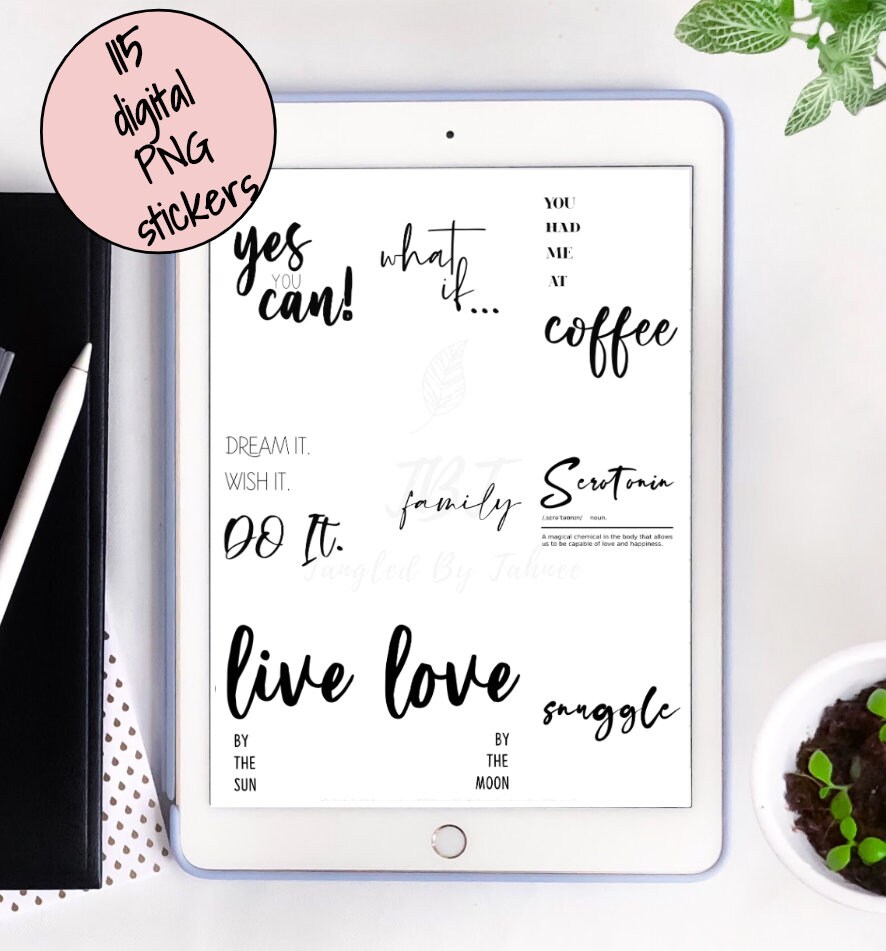 115
digital
PNG
stickers
yes
YOU
can!
what
if...
YOU
HAD
ME
AT
coffee
DREAM IT.
WISH IT.
DO It.
family
Serotonin
noun.
A magical chemical in the body that allows
us to be capable of love and happiness.
live
BY
THE
SUN
love
BY
THE
MOON
snuggle
JBJ
Tangled By Jahnee